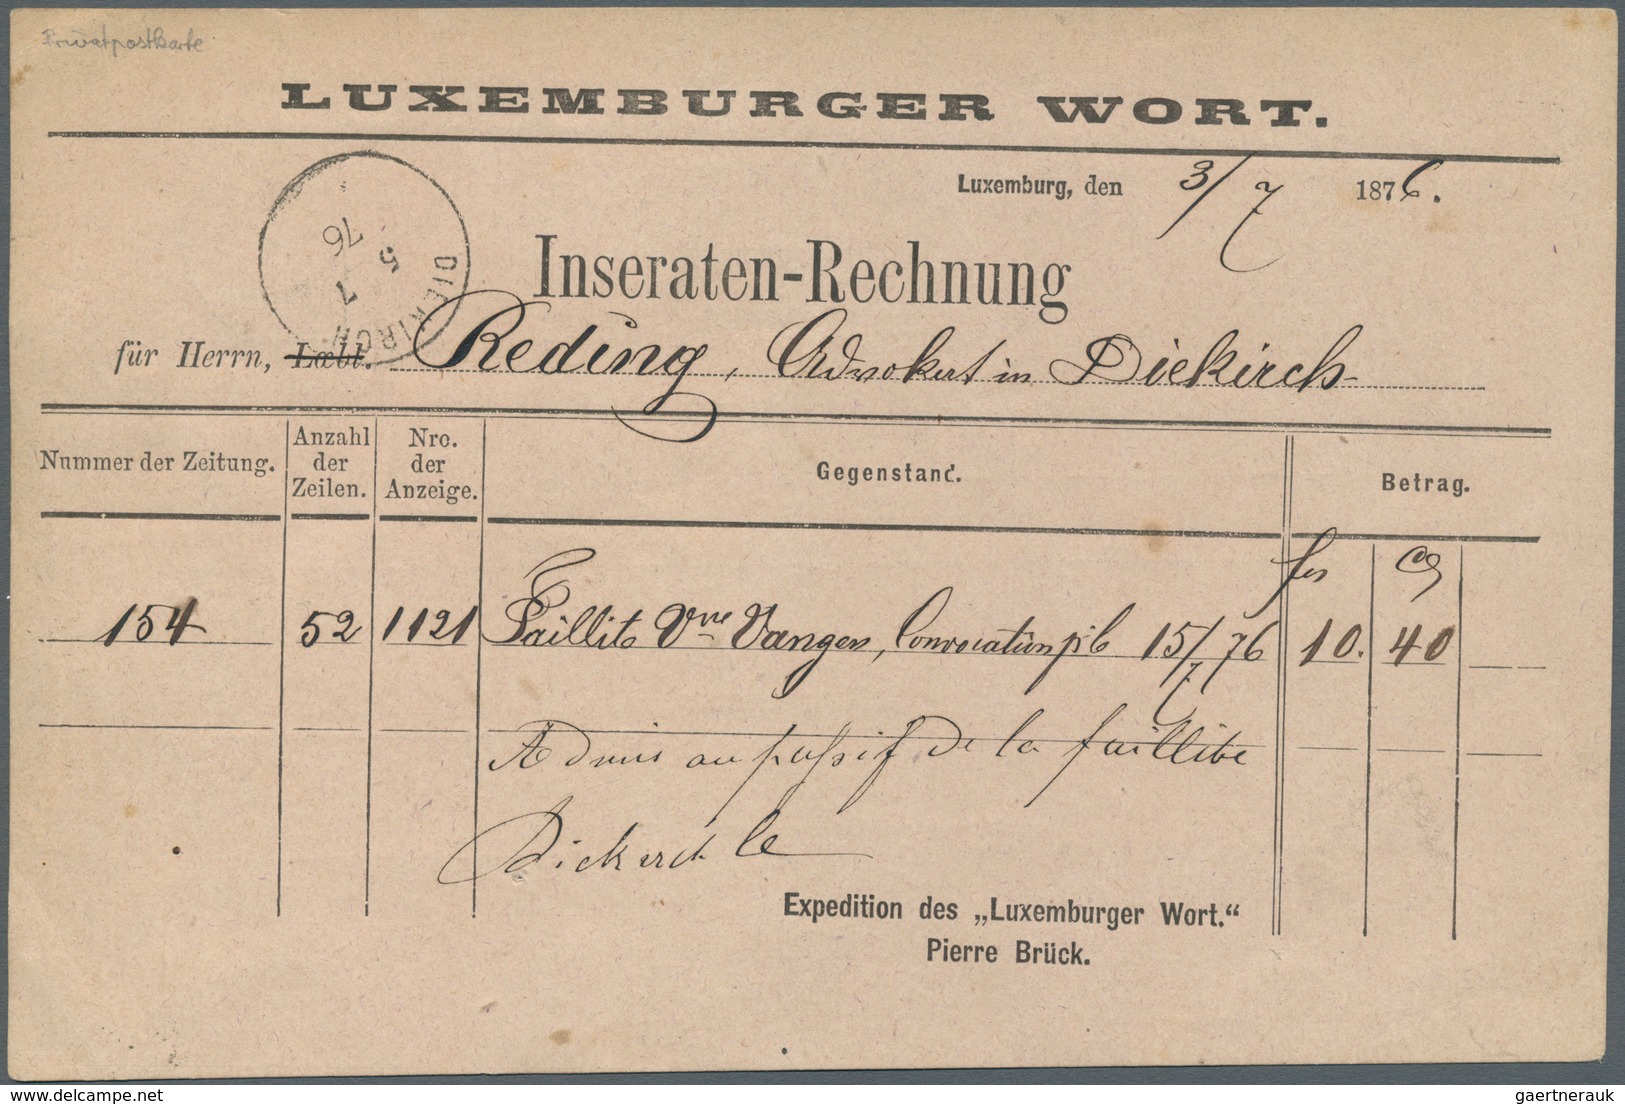 Privatpostkarte
LUXEMBURGER WORT.
Luxemburg, den 3/7 1876.
DIEKIRCH
5 7
76
Inseraten-Rechnung
für Herrn, Löbl. Reding, Advokat in Diekirch
Nummer der Zeitung. Anzahl der Zeilen. Nro. der Anzeige. Gegenstand. Betrag.
fcs cs
154 52 1121 Faillite Vve Vangen, Convocation 15/7 76 10. 40
Admis au passif de la faillite
Diekirch le
Expedition des „Luxemburger Wort.“
Pierre Brück.
gaertnerauk